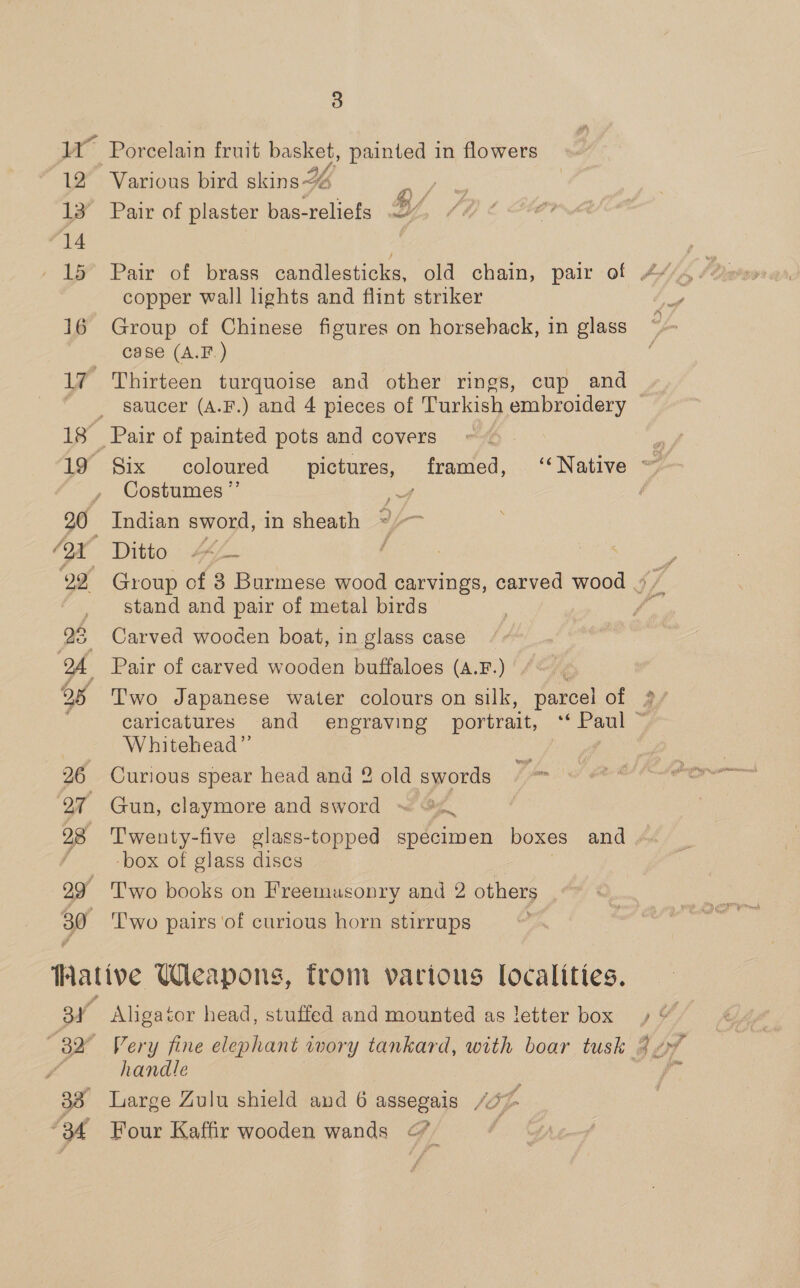 3
11 Porcelain fruit basket, painted in flowers
12 Various bird skins
13 Pair of plaster bas-reliefs
14
15 Pair of brass candlesticks, old chain, pair of
copper wall lights and flint striker
16 Group of Chinese figures on horseback, in glass
case (A.F.)
17 Thirteen turquoise and other rings, cup and
saucer (A.F.) and 4 pieces of Turkish embroidery
18 Pair of painted pots and covers
19 Six coloured pictures, framed, “Native
Costumes”
20 Indian sword, in sheath
21 Ditto
22 Group of 3 Burmese wood carvings, carved wood
stand and pair of metal birds
23 Carved wooden boat, in glass case
24 Pair of carved wooden buffaloes (A.F.)
25 Two Japanese water colours on silk, parcel of
caricatures and engraving portrait, “Paul
Whitehead”
26 Curious spear head and 2 old swords
27 Gun, claymore and sword
28 Twenty-five glass-topped specimen boxes and
box of glass discs
29 Two books on Freemasonry and 2 others
30 Two pairs of curious horn stirrups
Native Weapons, from various localities.
31 Aligator head, stuffed and mounted as letter box
32 Very fine elephant ivory tankard, with boar tusk
handle
33 Large Zulu shield and 6 assegais
34 Four Kaffir wooden wands